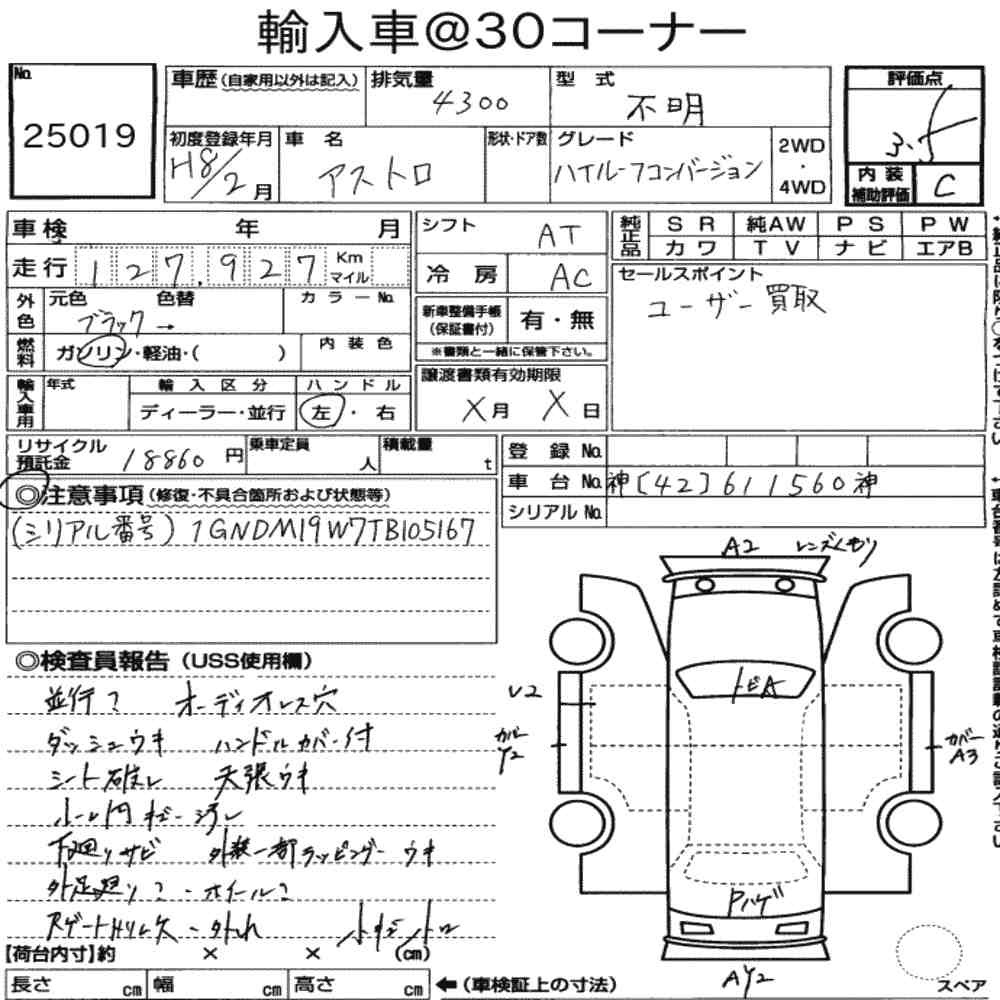 輸入車@30コーナー
No.
25019
車歴(自家用以外は記入)
排気量
4300
型式
不明
評価点
3.5
初度登録年月
H8/2月
車名
アストロ
形状・ドア数
グレード
ハイルーフコンバージョン
2WD
・
4WD
内装
補助評価
C
車検 年 月
走行 127,927 Km マイル
シフト
AT
冷房
AC
純正品
SR 純AW PS PW
カワ TV ナビ エアB
セールスポイント
ユーザー買取
外色
元色 色替
ブラック→
カラーNo.
新車整備手帳
(保証書付)
有・無
※書類と一緒に保管下さい。
燃料
ガソリン・軽油・( )
内装色
輸入車用
年式
輸入区分
ディーラー・並行
ハンドル
左・右
譲渡書類有効期限
X月 X日
リサイクル
預託金
18860円
乗車定員
人
積載量
t
登録No.
車台No. 神(42)611560神
シリアルNo.
◎注意事項(修復・不具合箇所および状態等)
(シリアル番号) 1GNDM19W7TB105167
◎検査員報告(USS使用欄)
並行? オーディオレス穴
ダッシュウキ ハンドルカバー付
シート破レ 天張ウキ
ルーム内 汚レ
下廻リサビ 外装一部ラッピング ウキ
外足廻リ? ホイール?
Rゲートドリル穴
[荷台内寸]約 × × (cm)
長さ cm 幅 cm 高さ cm
←(車検証上の寸法)
A2 レンズくもり
トビA
V2
カバー
Y2
カバー
A3
Pハゲ
AY2
スペア